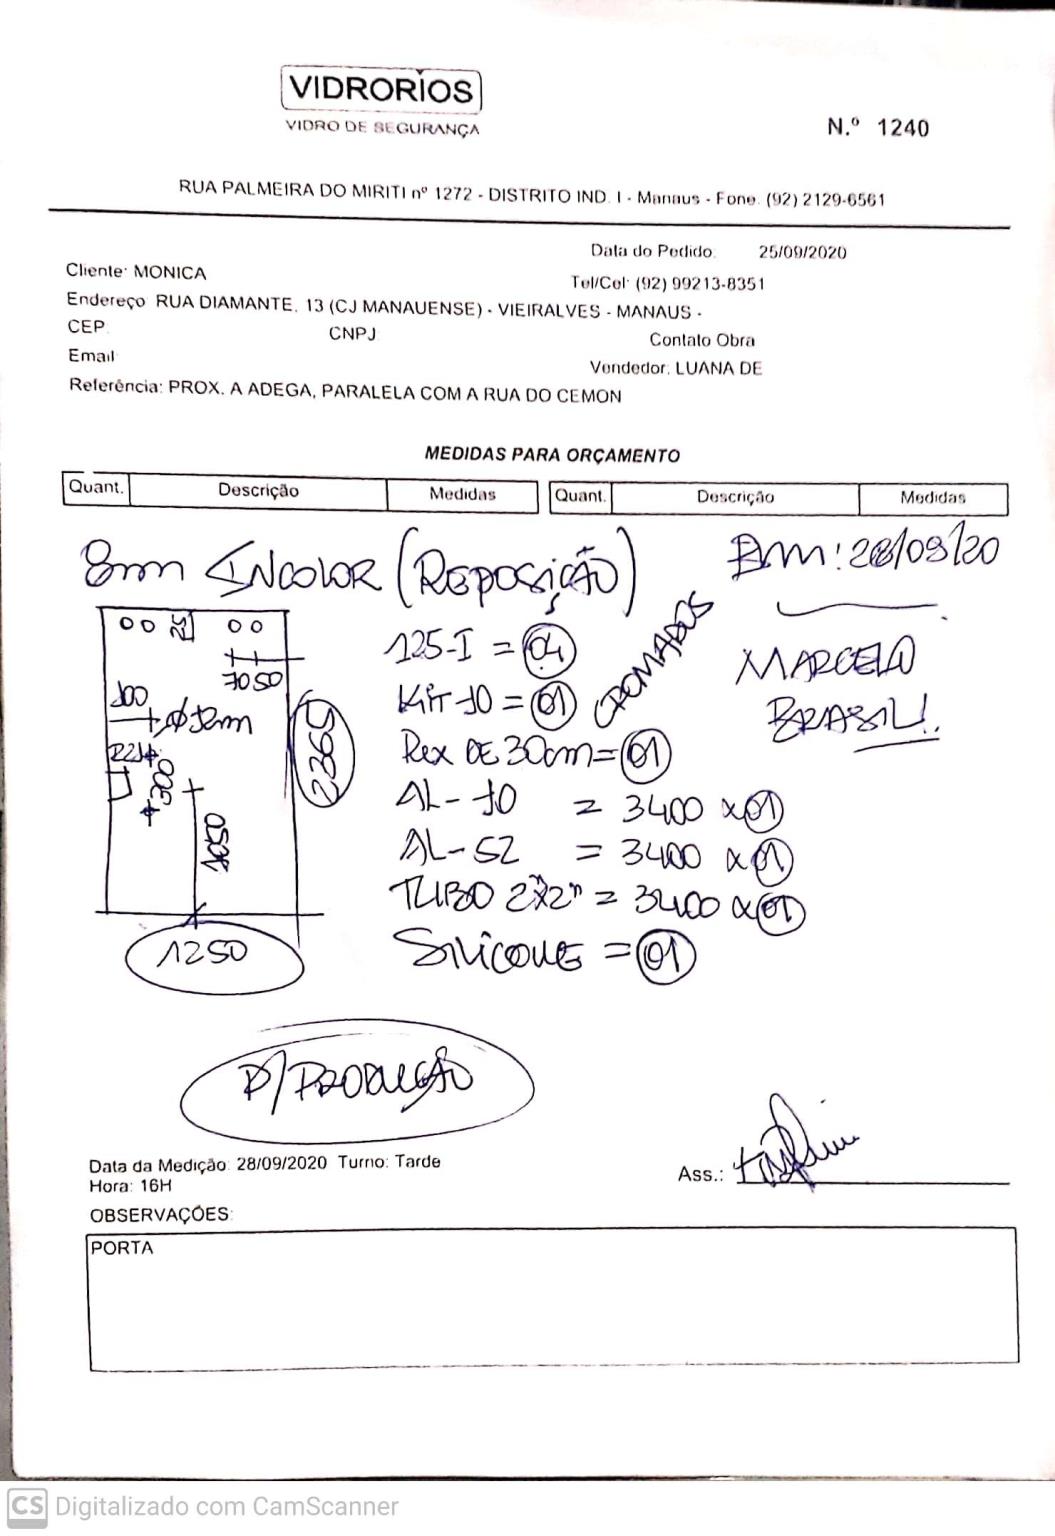 VIDRORIOS
VIDRO DE SEGURANÇA
N.º 1240
RUA PALMEIRA DO MIRITI nº 1272 - DISTRITO IND. I - Manaus - Fone. (92) 2129-6561
Data do Pedido: 25/09/2020
Cliente: MONICA
Tel/Cel: (92) 99213-8351
Endereço RUA DIAMANTE, 13 (CJ MANAUENSE) - VIEIRALVES - MANAUS -
CEP
CNPJ
Contato Obra
Email
Vendedor: LUANA DE
Referência: PROX. A ADEGA, PARALELA COM A RUA DO CEMON
MEDIDAS PARA ORÇAMENTO
Quant. Descrição Medidas Quant. Descrição Medidas
8mm INCOLOR (REPOSIÇÃO)
EM: 28/09/20
25
125-I = 04
CROMADOS
MARCELO
BRASIL!.
7050
KIT-10 = 01
100
2365
REX DE 30cm = 01
300
AL-10 = 3400 x 01
1050
AL-52 = 3400 x 01
TUBO 2"x2" = 3400 x 01
1250
SILICONE = 01
P/ PRODUÇÃO
Data da Medição: 28/09/2020 Turno: Tarde
Hora: 16H
Ass.:
OBSERVAÇÕES:
PORTA
CS Digitalizado com CamScanner